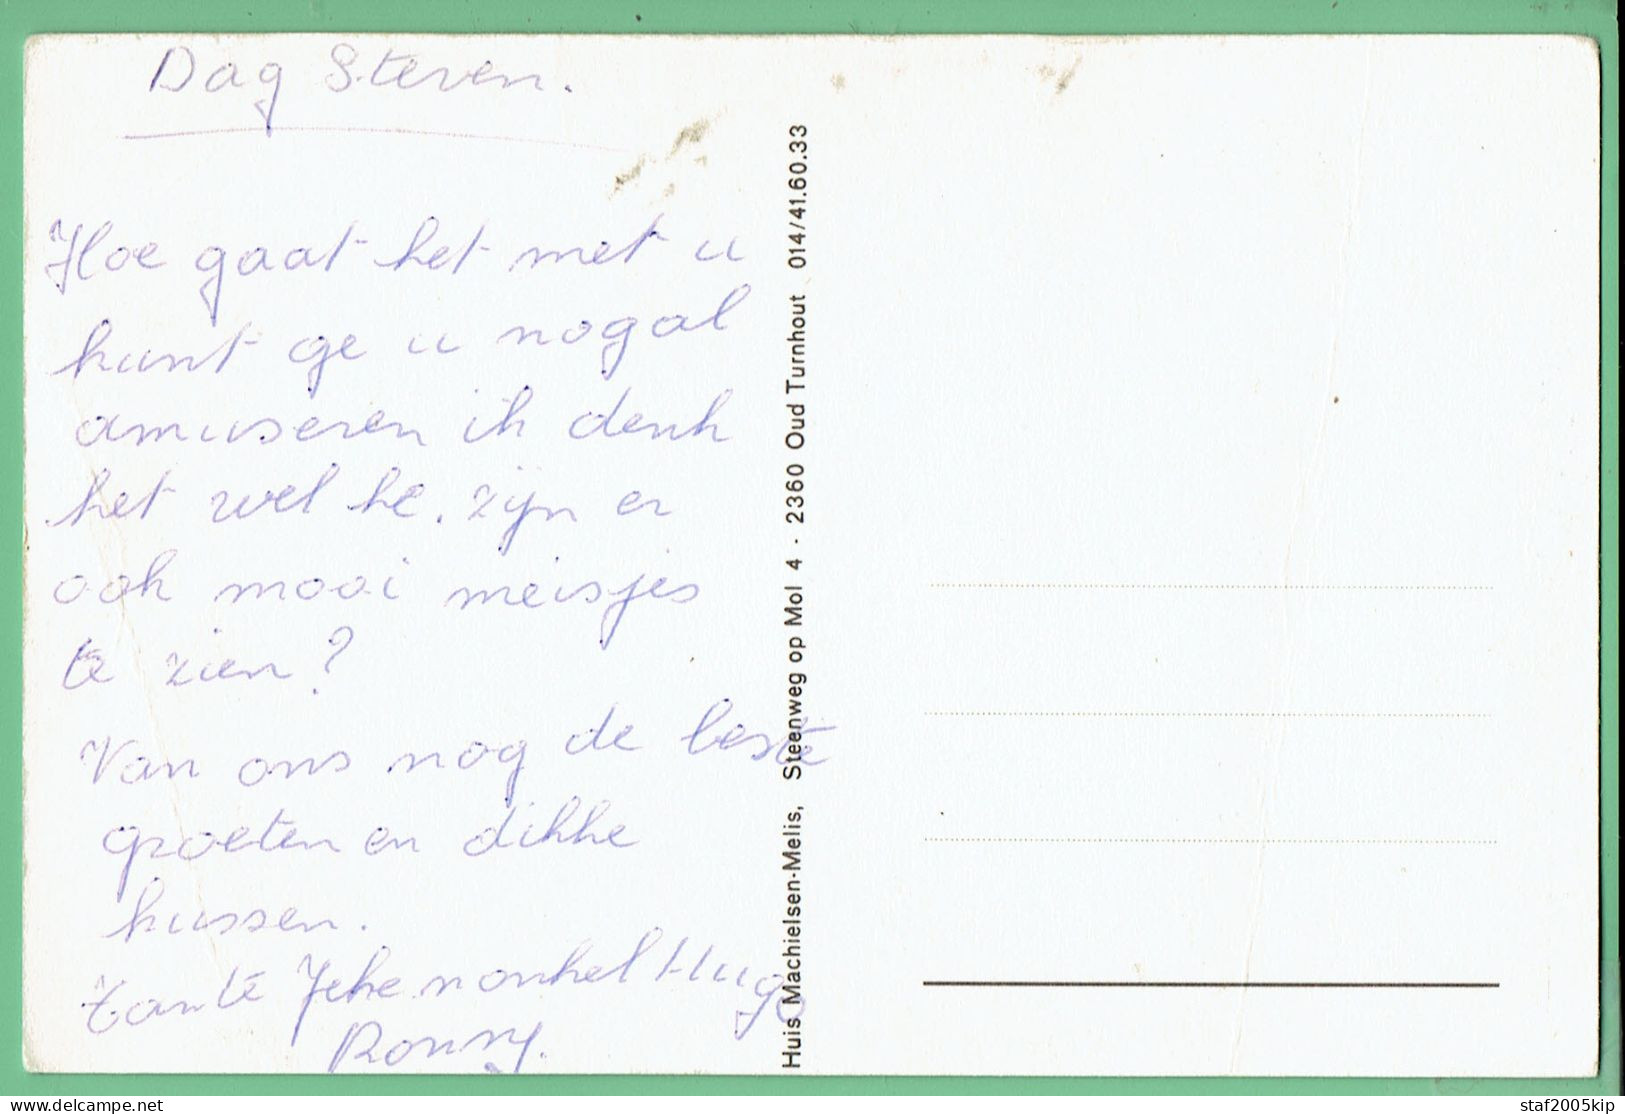 Dag Steven.
Hoe gaat het met u
kunt ge u nogal
amuseren ik denk
het wel he. zijn er
ook mooi meisjes
te zien?
Van ons nog de beste
groeten en dikke
kussen.
tante nonkel Hugo
Ronny.
Huis Machielsen-Melis, Steenweg op Mol 4 - 2360 Oud Turnhout 014/41.60.33
delcampe.net
staf2005kip